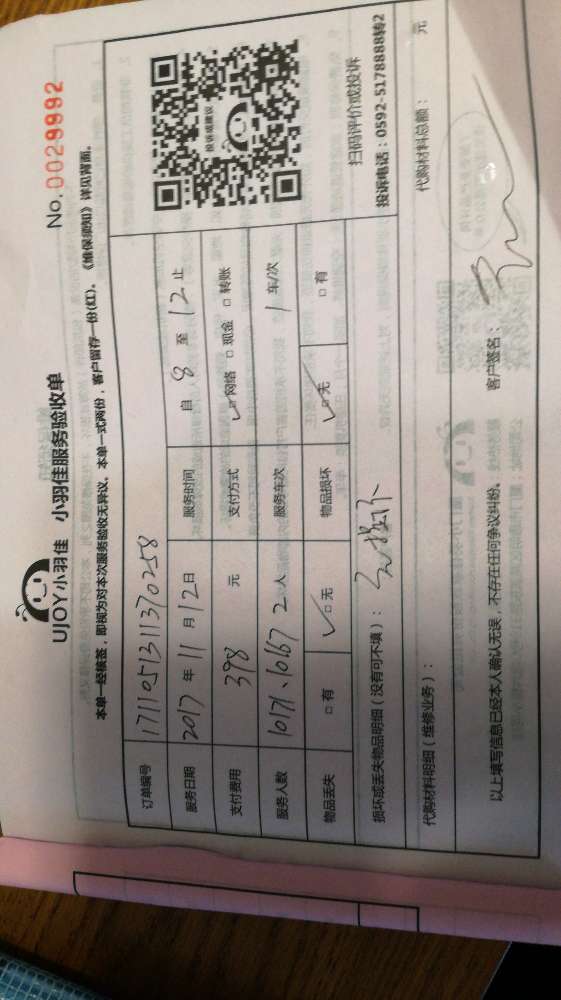 UJOY小羽佳 小羽佳服务验收单
No. 0029992
本单一经核签，即视为对本次服务验收无异议。本单一式两份，客户留存一份(红)。《维保须知》详见背面。
订单编号 171105131137​0258
服务日期 2017 年 11 月 12 日 服务时间 自 8 至 12 止
支付费用 398 元 支付方式 ☑网络 □现金 □转账
服务人数 10171、10167 2 人 服务车次 1 车/次
物品丢失 □有 ☑无 物品损坏 ☑无 □有
投诉或建议
扫码评价或投诉
投诉电话：0592-5178888转2
损坏或丢失物品明细（没有可不填）：
代购材料明细（维修业务）： 代购材料总额： 元
以上填写信息已经本人确认无误，不存在任何争议纠纷。 客户签名：